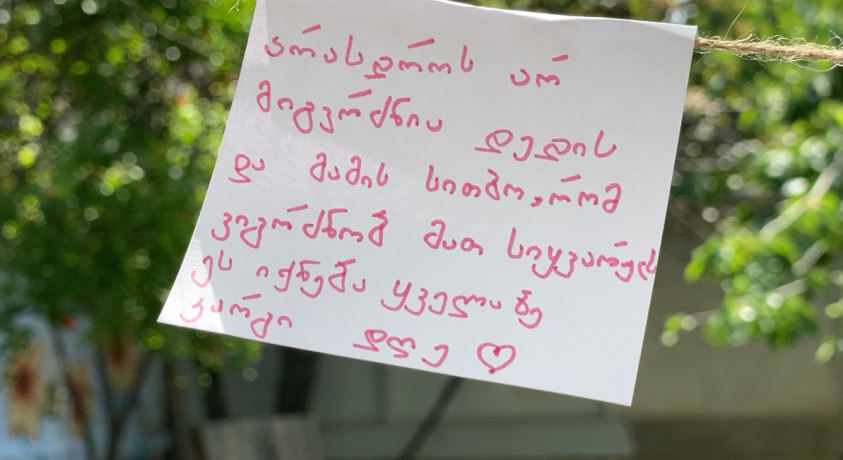 არასდროს არ
მიგვიქნია დედის
და მამის სითბო, რომ
ვიგრძნობ მათ სიყვარულს
ეს იქნება ყველაზე
კარგი დღე ♡